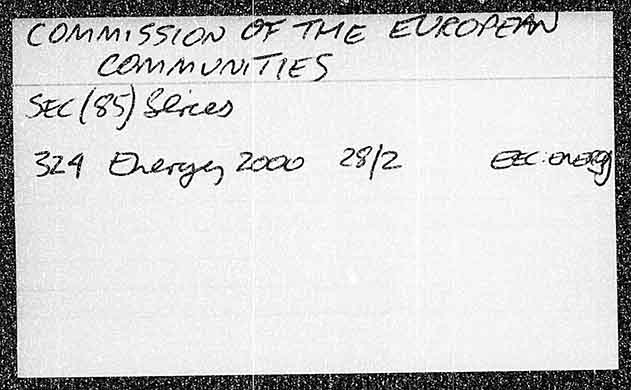 COMMISSION OF THE EUROPEAN
COMMUNITIES
SEC (85) Series
324 Energy 2000 28/2 EEC: ENERGY